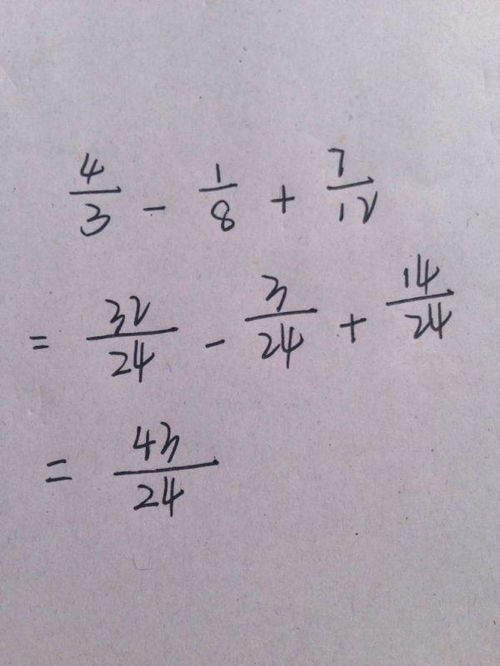 4/3 - 1/8 + 7/12
= 32/24 - 3/24 + 14/24
= 43/24